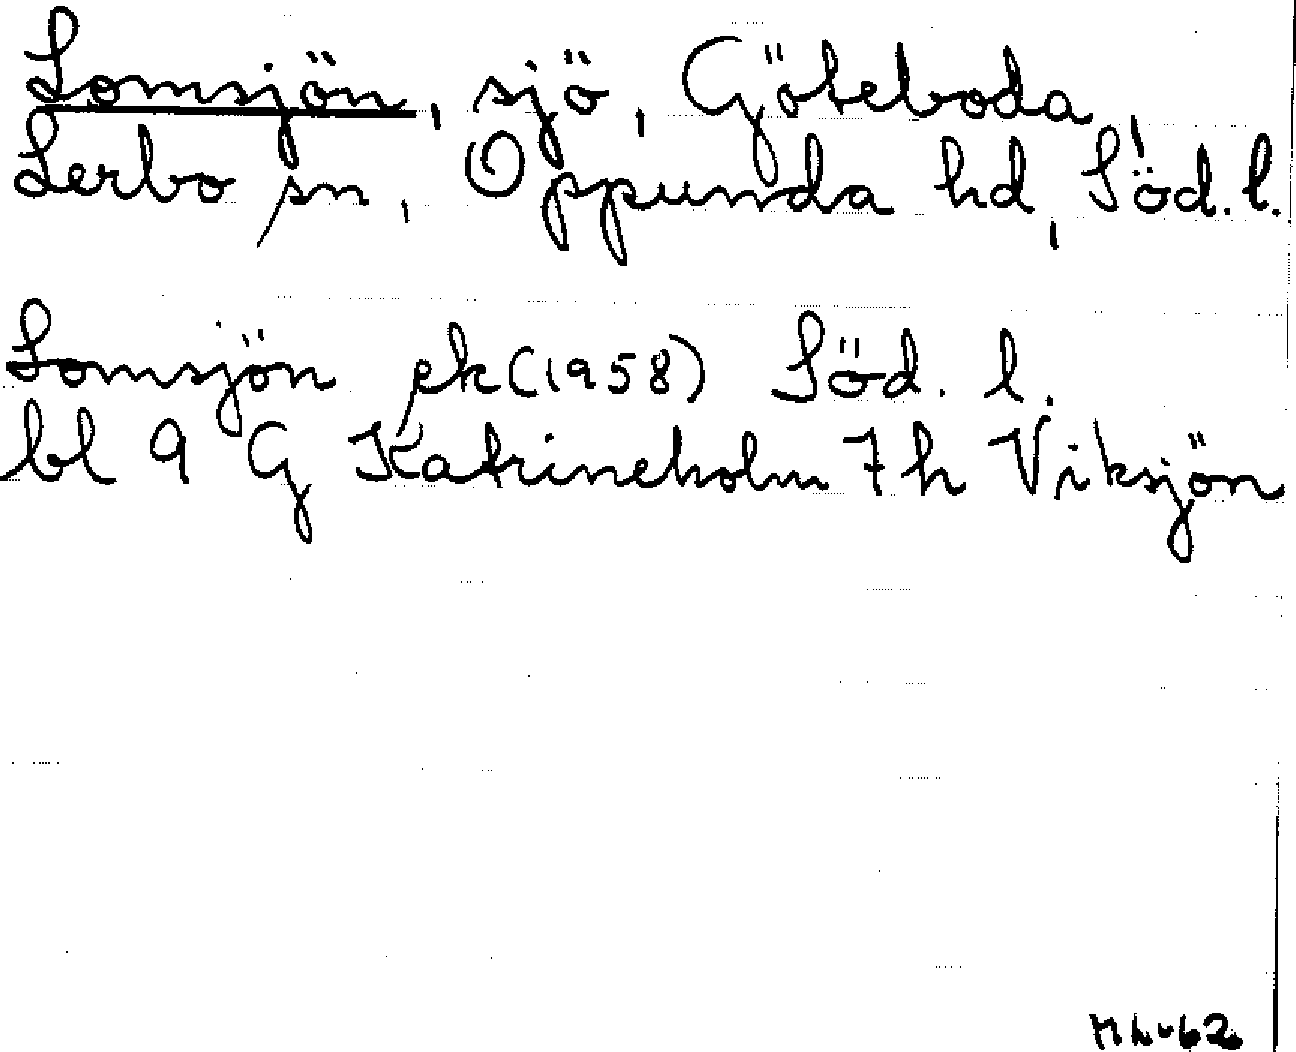 Lomsjön, sjö, Göteboda,
Lerbo sn, Oppunda hd, Söd. l.
Lomsjön ek (1958) Söd. l.
bl 9 G Katrineholm 7 h Viksjön